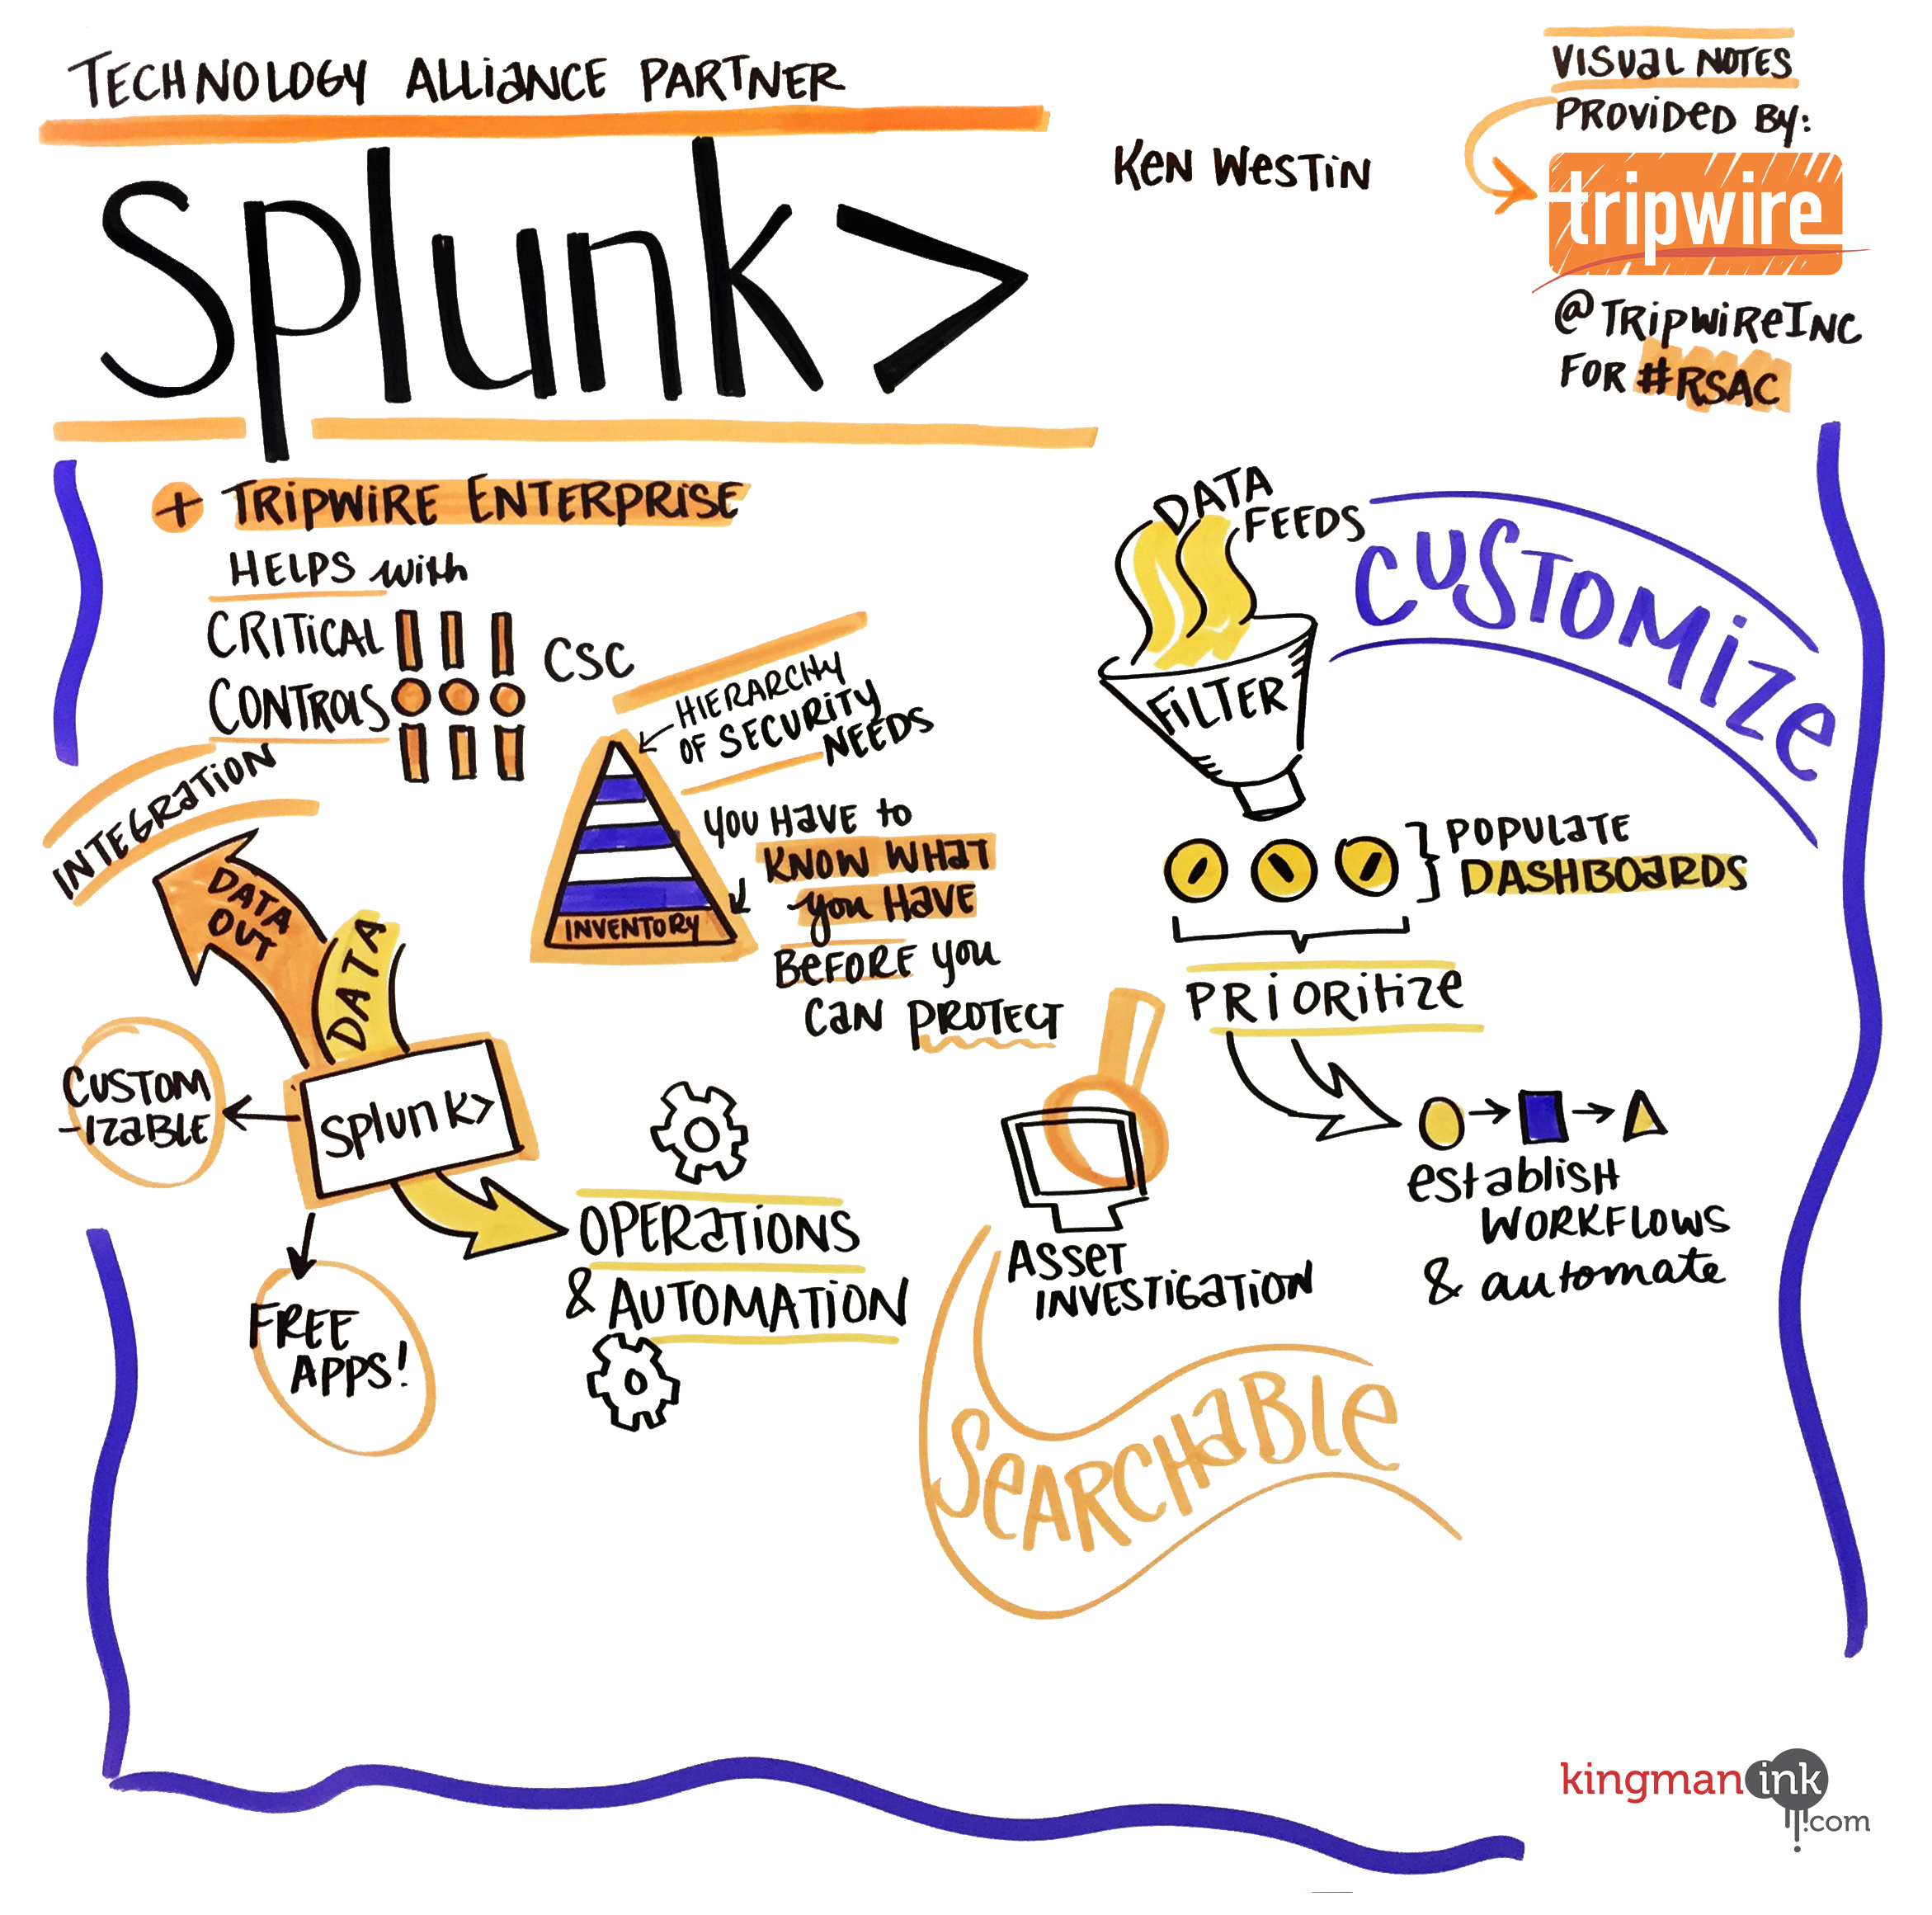 TECHNOLOGY ALLiaNCE PARTNER
splunk>
KeN WesTiN
VISUaL NOTES
PROViDeD BY:
tripwire
@TRipWiReINC
FOR #RSAC
+ TRiPWiRE ENTERPRiSE
HELPS with
CRiTiCAL
CONTROlS
CSC
HIERARCHY
OF SECURiTY
NEEDS
YOU HAVE to
KNOW WHaT
you HAVE
BeFORE you
CaN PROTECT
INVENTORY
INTEGRaTiON
DATA
OUT
DATA
splunk>
CUSTOM
-IZaBLE
FREE
APPS!
OPERaTiONS
& AUTOMATiON
DATA
FEEDS
FiLTER
CUSTOMiZe
POPULaTE
DASHBOaRDS
PRiORitize
establisH
WORKFLOWS
& automate
ASSeT
INVESTiGaTiON
SeARCHaBLe
kingman ink
.com